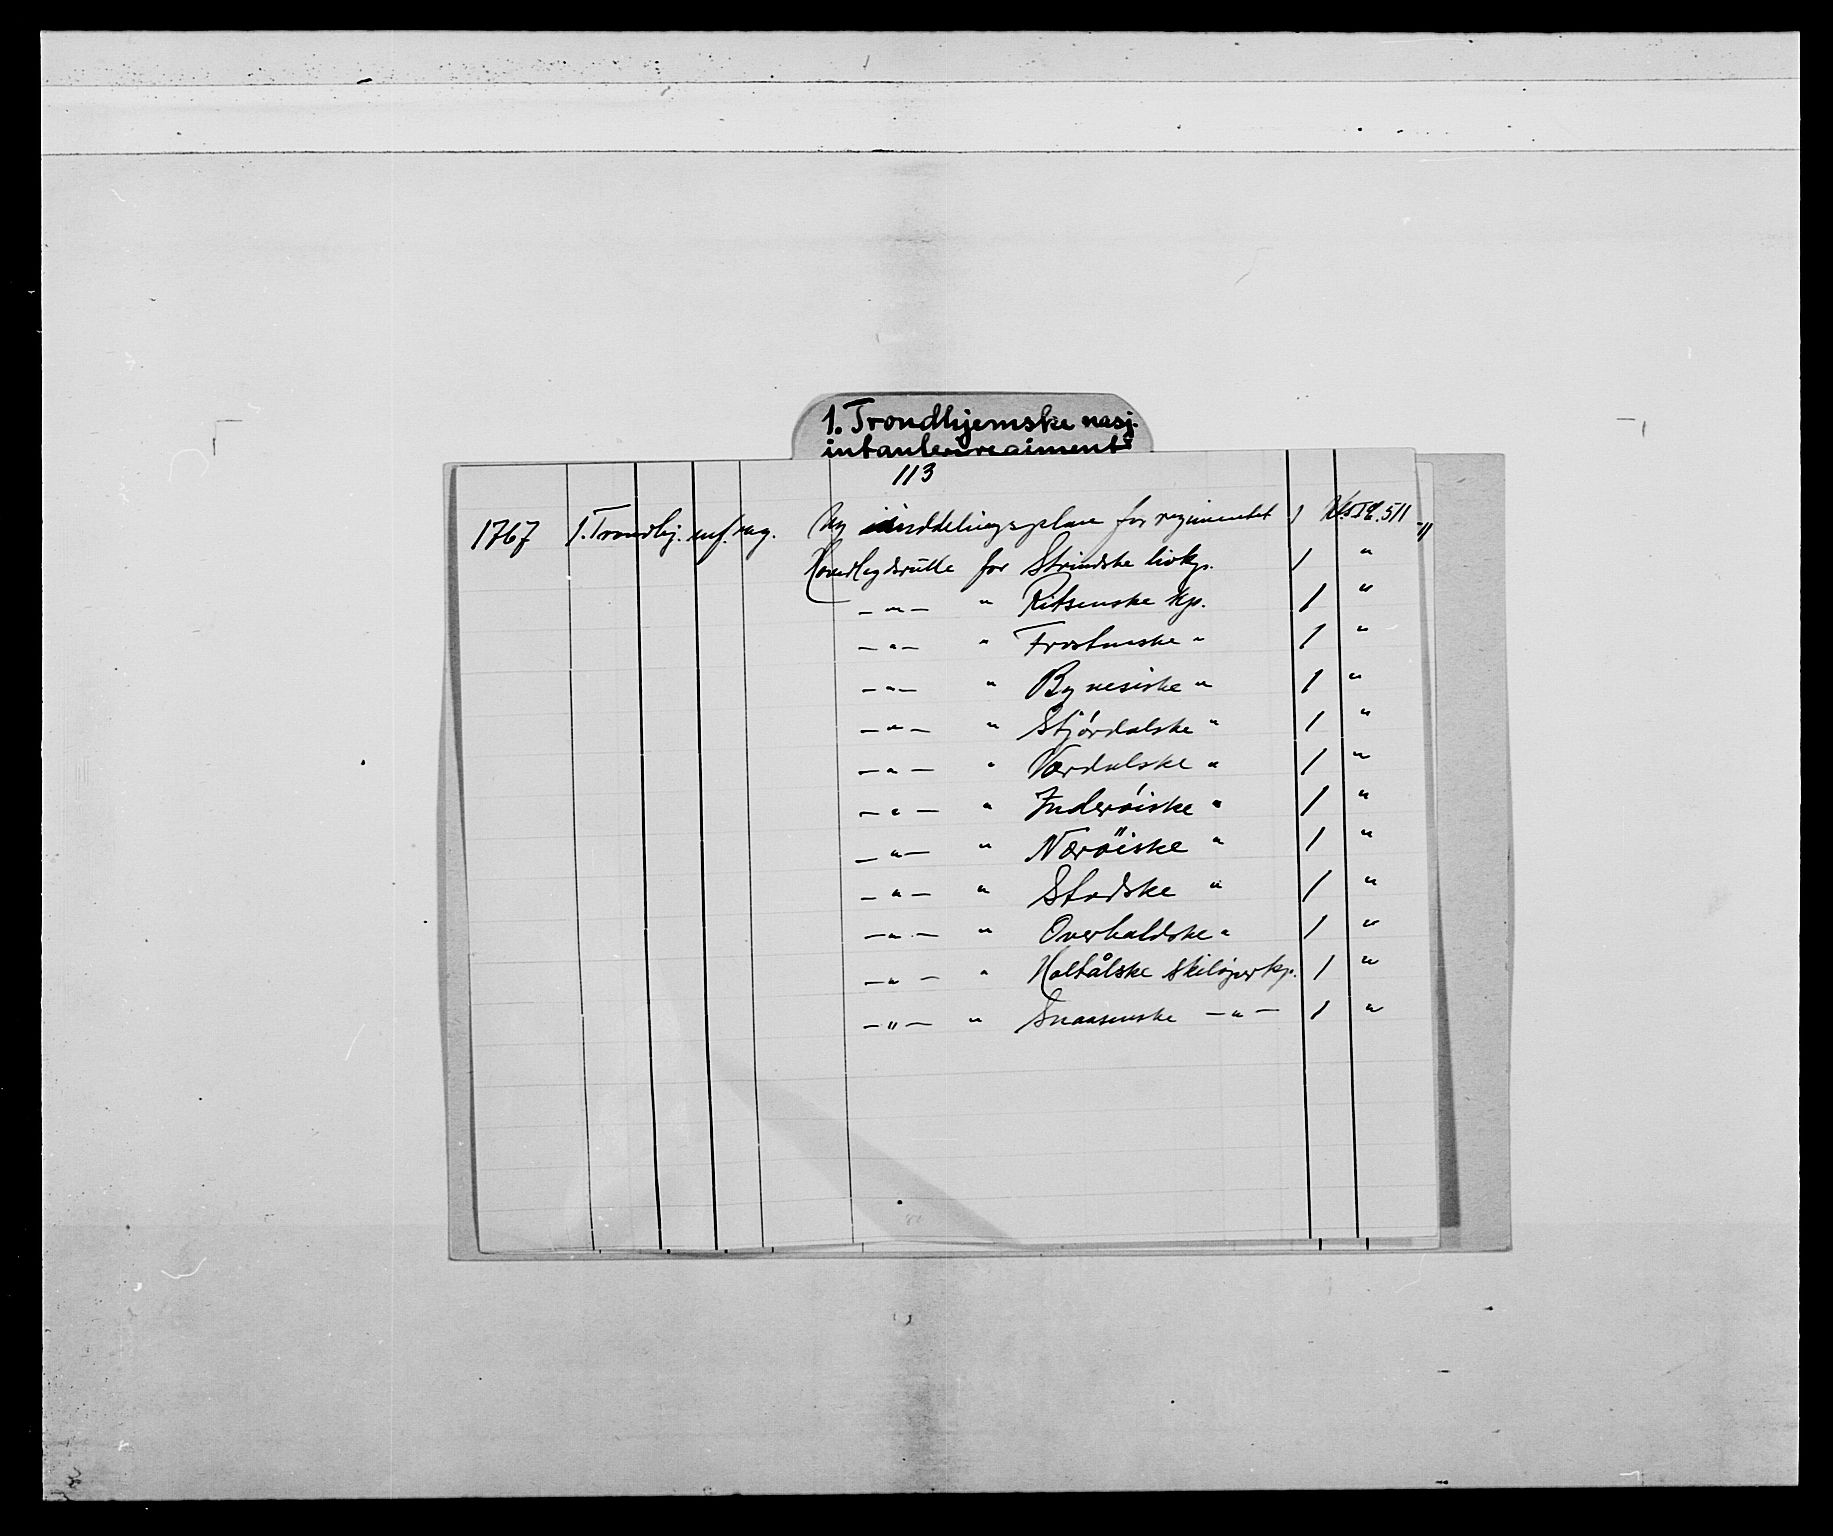 1. Trondhjemske nasj.
infanteriregiment
113
1767 1. Trondhj. inf. reg. Ny inddelingsplan for regimentet 1 511
Hovedlegdsrulle for Strindske livkp. 1 "
— " — " Ritsenske kp. 1 "
— " — " Frostenske " 1 "
— " — " Bynesiske " 1 "
— " — " Stjørdalske " 1 "
— " — " Værdalske " 1 "
— " — " Inderøiske " 1 "
— " — " Nærøiske " 1 "
— " — " Stodske " 1 "
— " — " Overhaldske " 1 "
— " — " Holtålske skiløperkp. 1 "
— " — " Snaasenske — " — 1 "